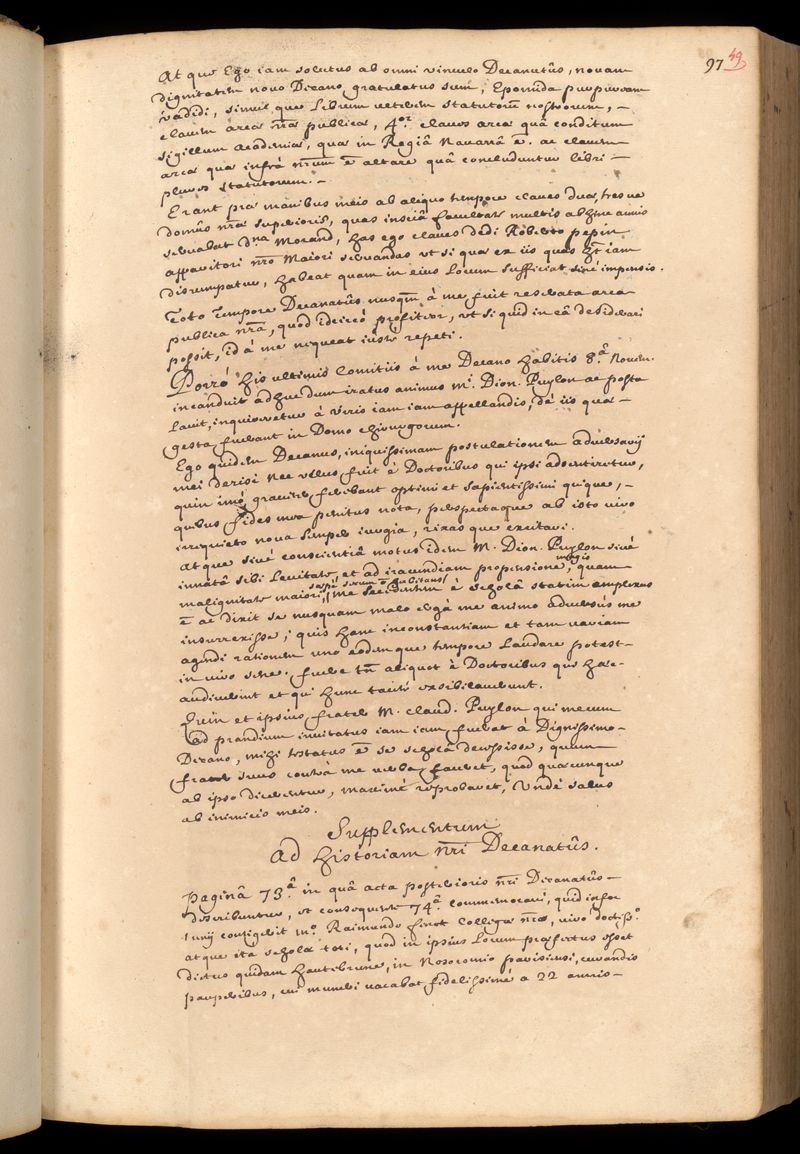 97 49
At que Ego iam solutus ab omni vinculo Decanatûs, novam
dignitatem novo Decano gratulatus sum, Epomida purpuream
tradidi, simul que Librum veterem statutorũ nostrorum, –
clavem arca nr̃a publica, 4or claves arca quâ conditum
sigillum academia, qua in Regiâ Navarrâ ẽ. ac clavem
arca qua infrà nr̃um ẽ altare quâ concluduntur libri –
plures statutorum. –
Erant pra manibus meis ab aliquo tempore claves dua, tres ve
domûs nr̃a superioris, quas insciâ facultate multis abhinc annis
servabat Dna Morand, has ego claves dedi Roberto pepin
apparitori nr̃o Maiori servandas vt si qua ex iis quas hẽt iam
disrumpatur, habeat quam in eius Locum sufficiat sine impensis.
Toto Tempore Decanatûs nusqm̃ à me fuit reserata arca
publica nr̃a, quod idcircò profiteor, vt si quid in eâ desiderari
possit, id à me nequeat iuste repeti.
Porrò his ultimis Comitiis à me Decano habitis 8.â Novem.
incanduit adhuc dum iratus animus M.i Dion. Puylon ac posta
Lavit, inquireretur à viris iam iam appellandis, de iis qua –
gesta fuerant in Domo chirurgorum.
Ego quidem Decanus, iniquissimam postulationem adversarij
mei derisi nec vllus fuit è Doctoribus qui ipsi adsentiretur,
quin imò graviter ferebant optimi et sapientissimi quique, –
quibus fides mea penitus nota, perspectaque ab isto viro
irrequieto nova semper iurgia, rixas que excitari.
at que sivè conscientiâ motus idem M. Dion. Puylon sivè
innatâ sibi Levitate, et ad iracundiam propensione, magis quam
malignitate maiori, me secedentem è scholâ statim amplexus
ẽ ac dixit se nusquam malo ergà me animo adversùs me
insurrexisse; quis hanc inconstantiam et tam variam
agendi rationem uno eodem que tempore Laudare potest –
in viro sene. fuere tñ aliquot è Doctoribus qui hæc –
audiverint et qui hunc tacitè exsibilaverunt.
Quin et ipsius frater M. Claud. Puylon qui mecum
ad prandium invitatus iam iam fuerat à Dignissimo –
Decano, mihi testatus ẽ se scholâ decessisse, quum
frater suus contrà me verba faceret, quod quæcunque
ab ipso dicerentur, maximè reprobaret, Vndè salus
ab inimicis meis.
Supplementum
Ad Historiam nr̃i Decanatûs.
Paginâ 73.â in quâ acta posterioris nr̃i Decanatûs –
describuntur, et consequente 74.â commemoravi, quid infor
tunij contigerit m.o Raimundo finot Collegæ nr̃o, viro doctiss.o
atque ita scholæ toti, quod in ipsius Locum præfectus esset
dictus quidam hautebrune, in Nosocomio parisiensi, curandis
pauperibus, cui muneri vacabat fidelissimè a 22 annis –